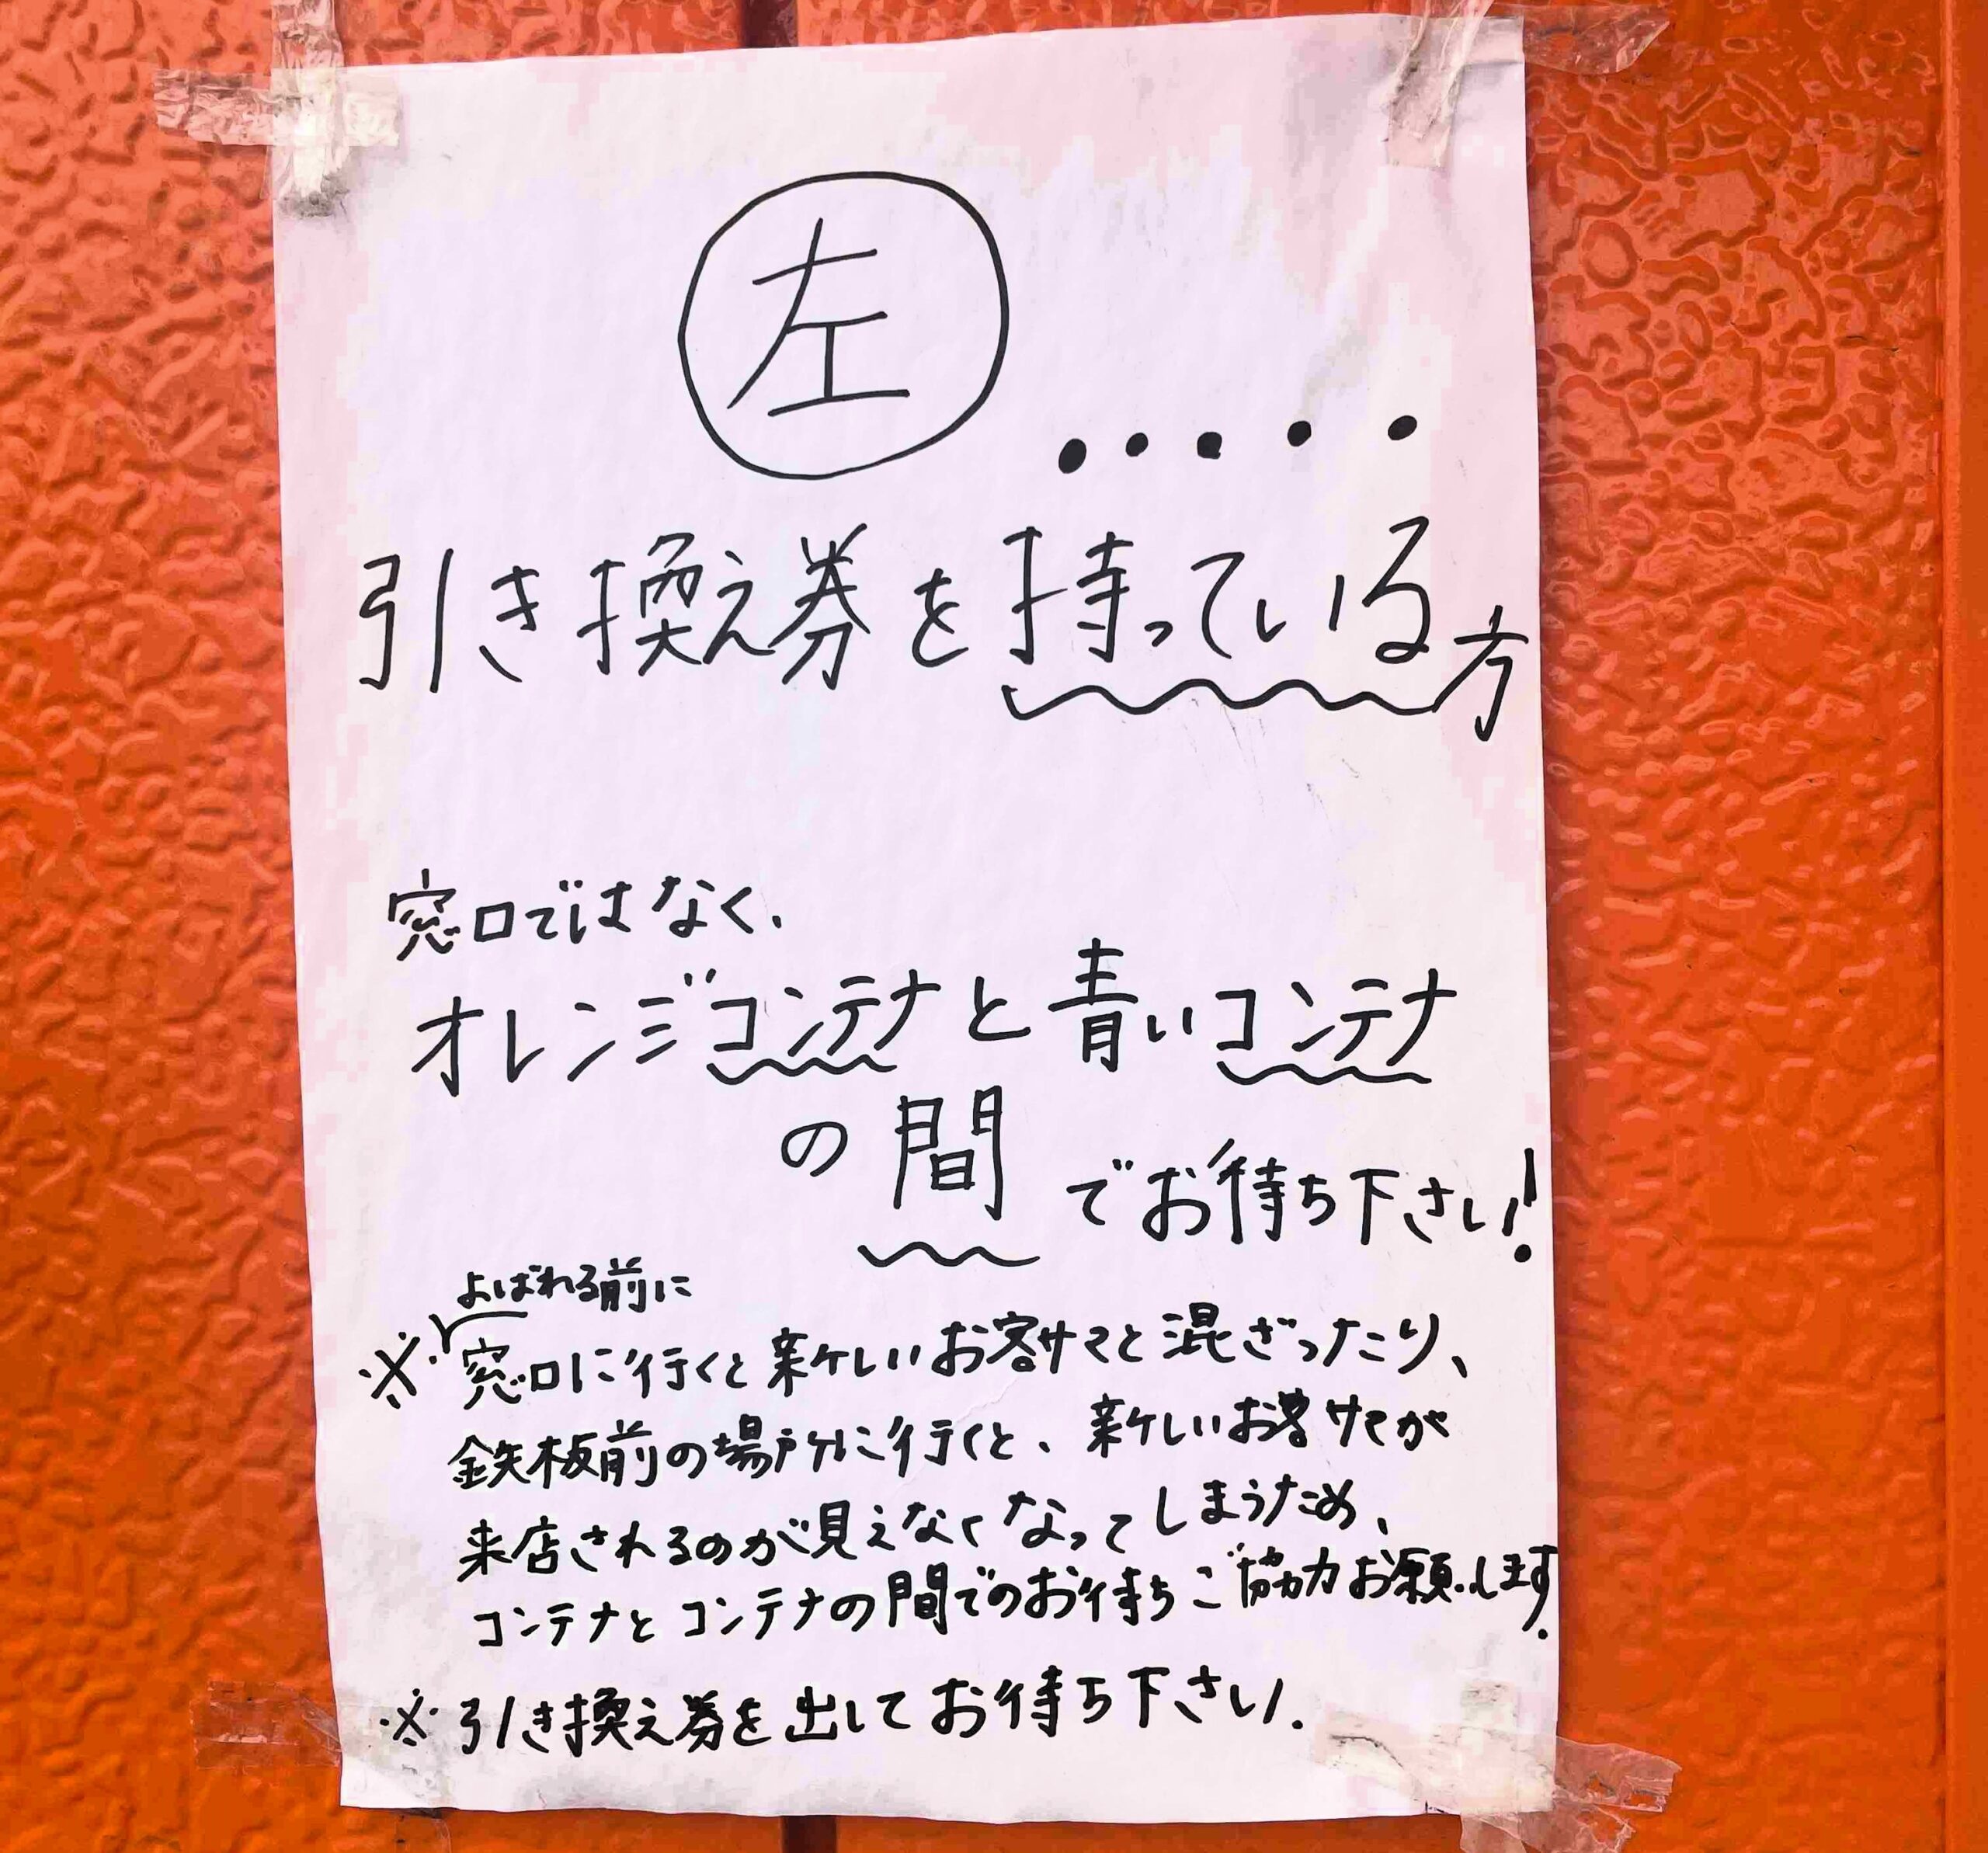 左 ・・・・・
引き換え券を持っている方
窓口ではなく、
オレンジコンテナと青いコンテナ
の間でお待ち下さい!
よばれる前に
※窓口に行くと新しいお客サマと混ざったり、
鉄板前の場所に行くと、新しいお客サマが
来店されるのが見えなくなってしまうため、
コンテナとコンテナの間でのお待ちご協力お願いします.
※引き換え券を出してお待ち下さい.